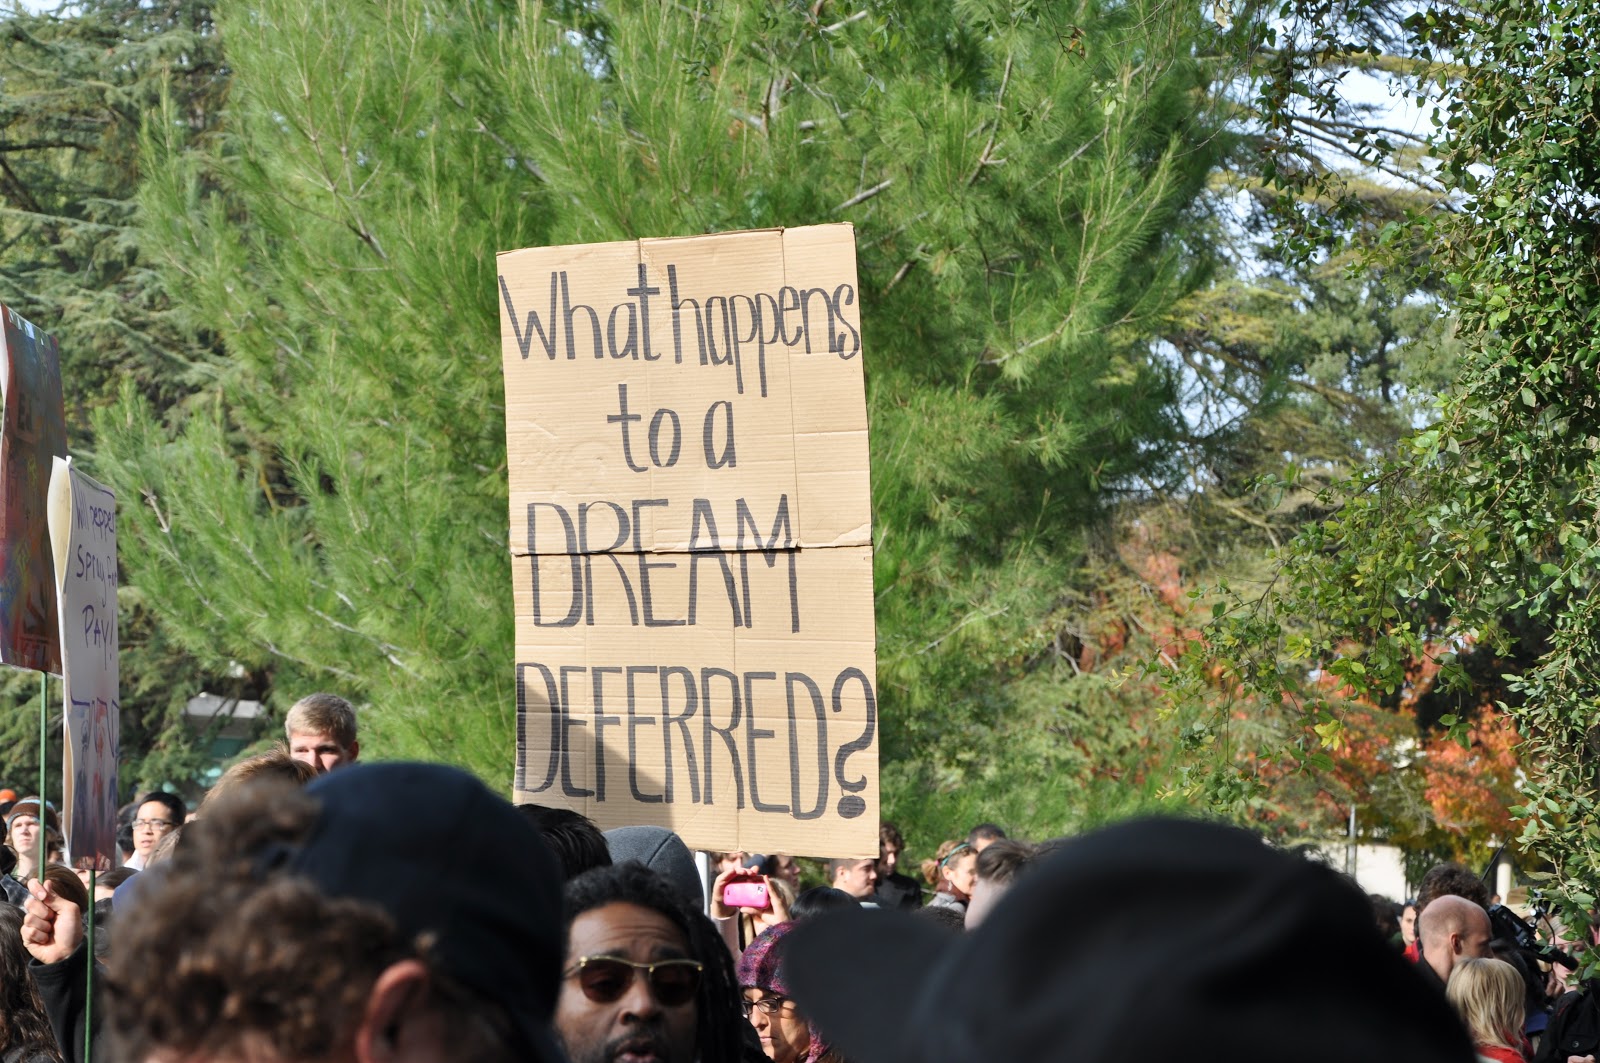 What happens
to a
DREAM
DEFERRED?
Will pepper
Spray for
PAY!